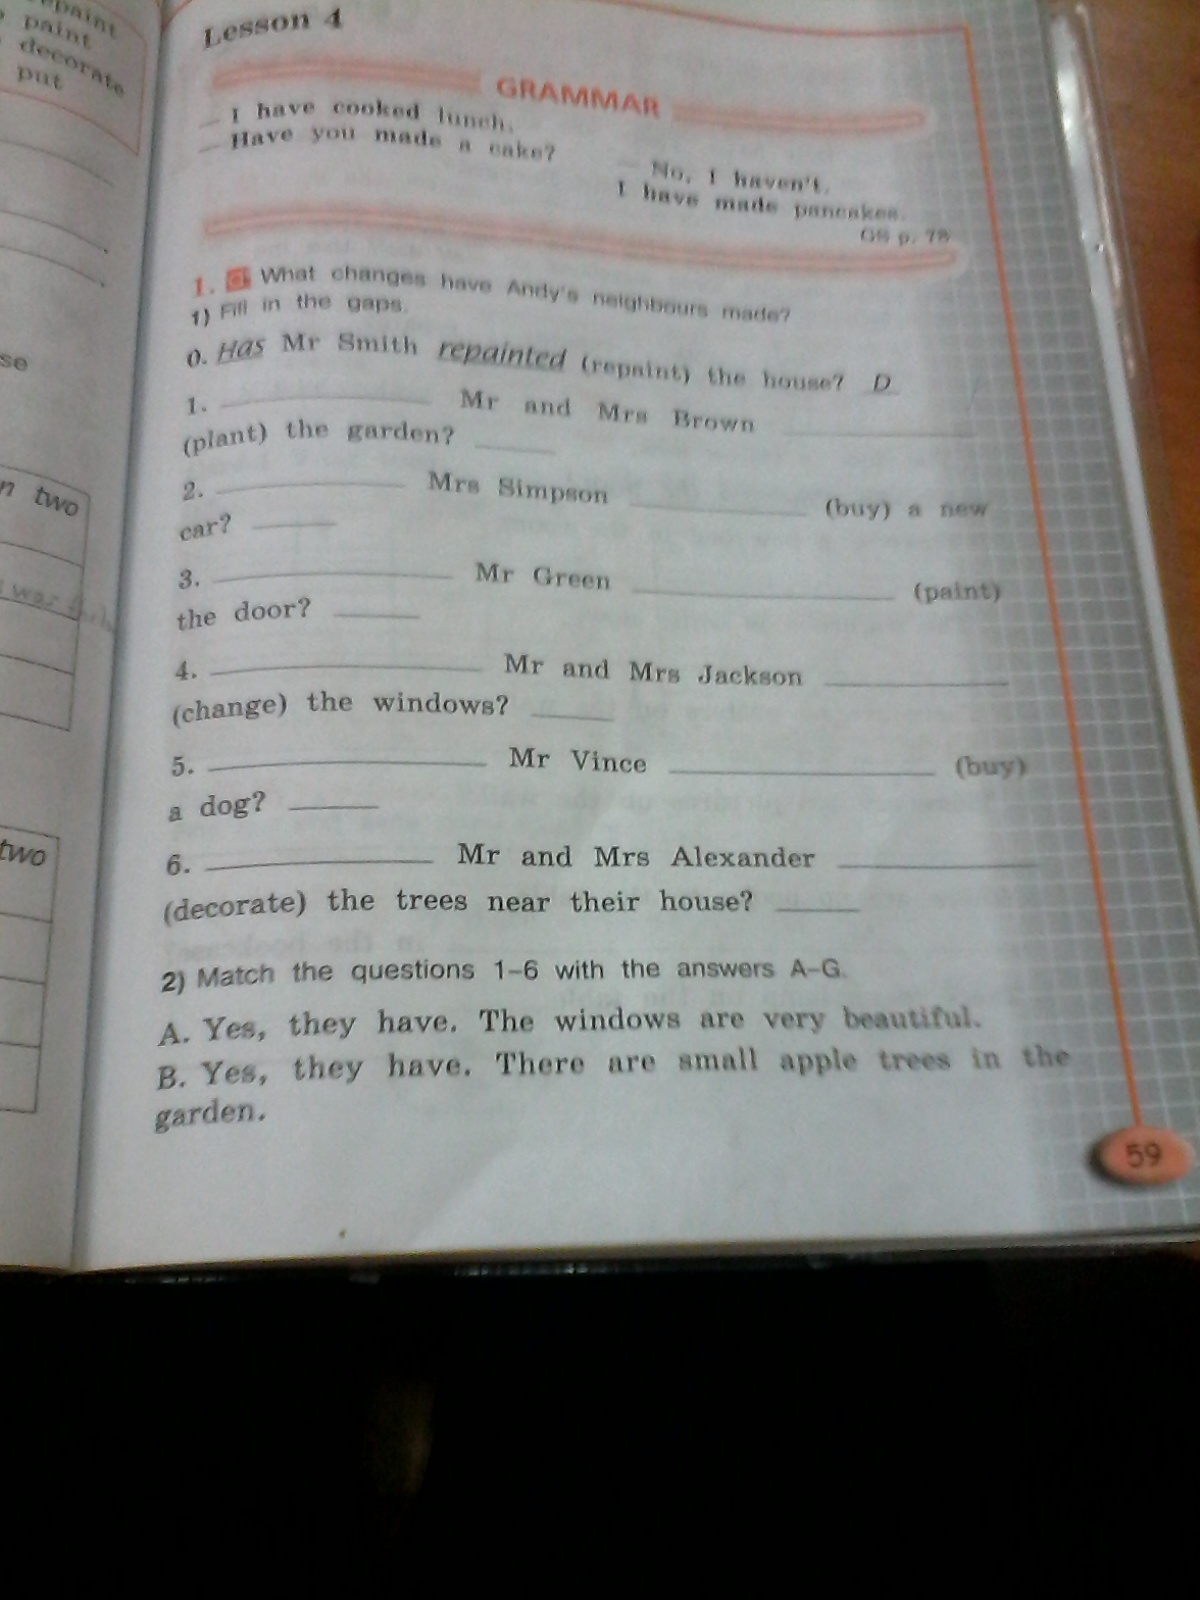 repaint
paint
decorate
put
se
n two
two
Lesson 4
GRAMMAR
— I have cooked lunch.
— Have you made a cake?
— No, I haven't.
I have made pancakes.
GS p. 78
1. What changes have Andy's neighbours made?
1) Fill in the gaps.
0. Has Mr Smith repainted (repaint) the house? D
1. ____ Mr and Mrs Brown ____
(plant) the garden? ____
2. ____ Mrs Simpson ____ (buy) a new
car? ____
3. ____ Mr Green ____ (paint)
the door? ____
4. ____ Mr and Mrs Jackson ____
(change) the windows? ____
5. ____ Mr Vince ____ (buy)
a dog? ____
6. ____ Mr and Mrs Alexander ____
(decorate) the trees near their house? ____
2) Match the questions 1–6 with the answers A–G.
A. Yes, they have. The windows are very beautiful.
B. Yes, they have. There are small apple trees in the
garden.
59